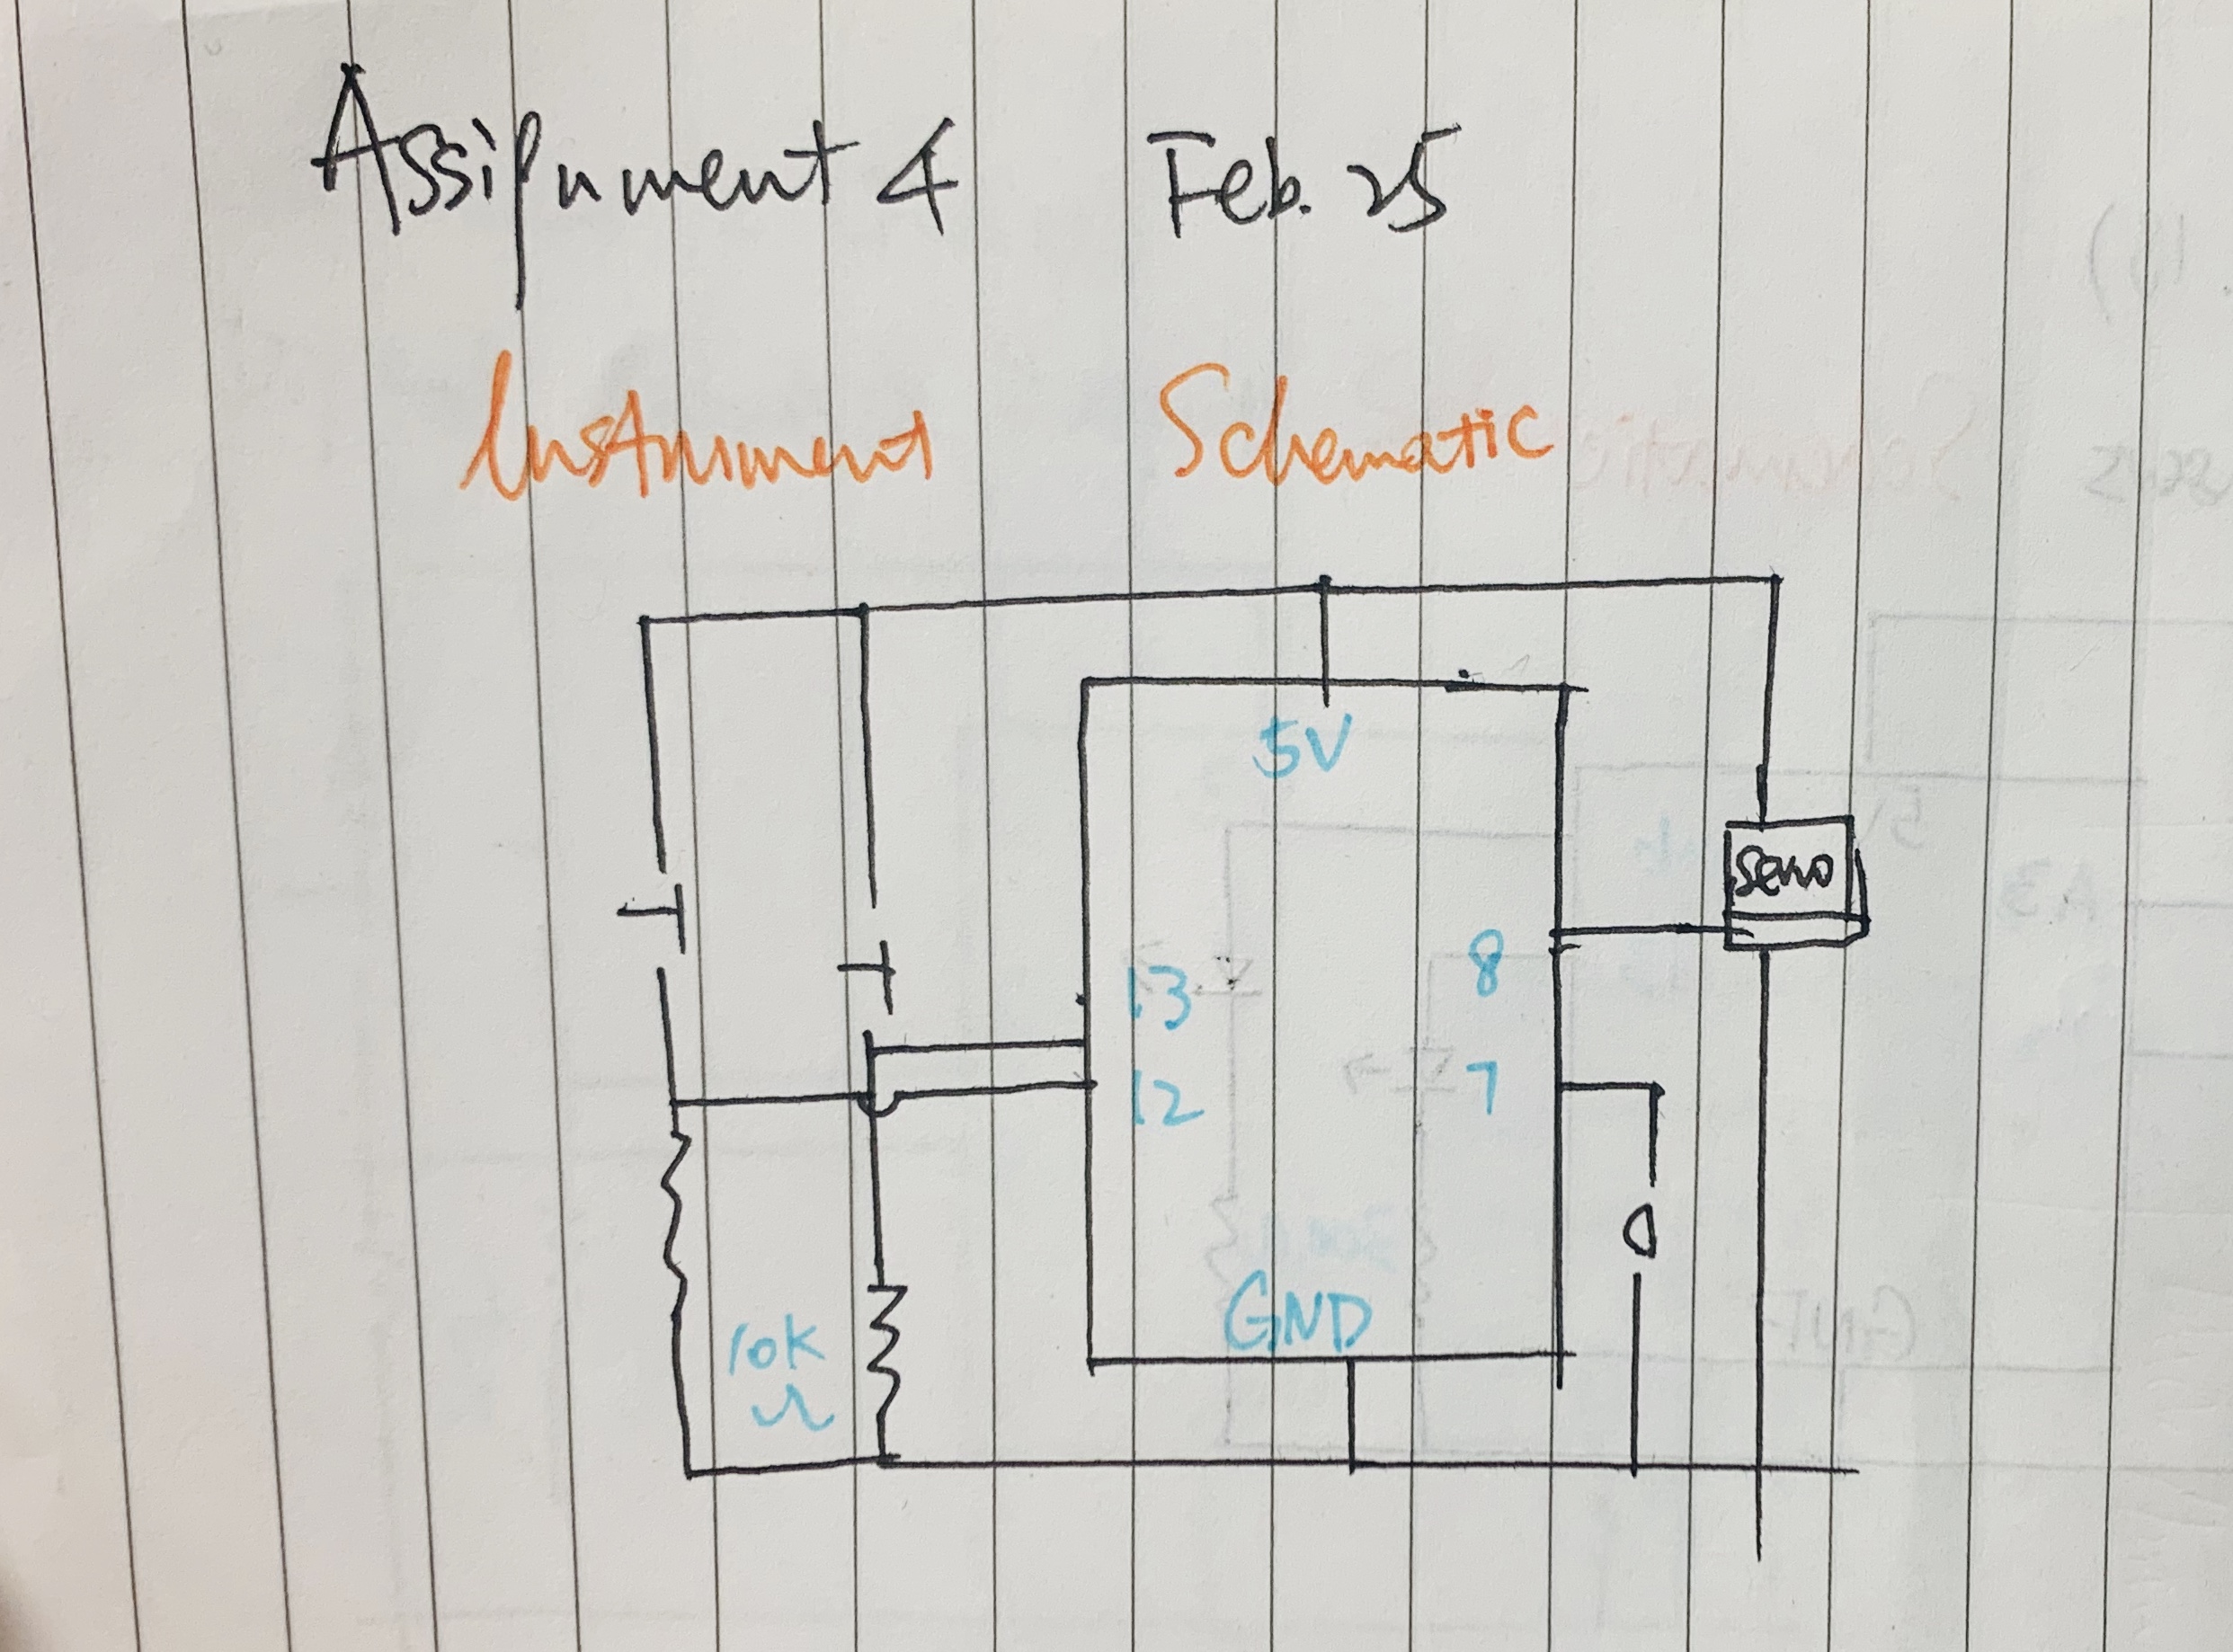 Assignment 4 Feb. 25
Instrument Schematic
5V
servo
13 8
12 7
GND
10K
Ω